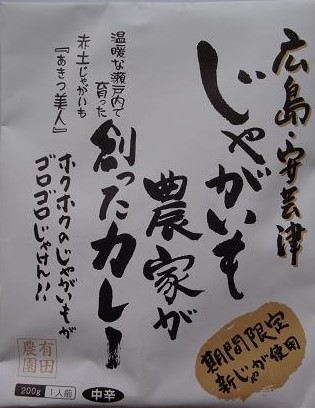 広島・安芸津
じゃがいも
農家が
創ったカレー
温暖な瀬戸内で
育った
赤土じゃがいも
『あきつ美人』
ホクホクのじゃがいもが
ゴロゴロじゃけん!!
有田
農園
期間限定
新じゃが使用
200g 1人前
中辛